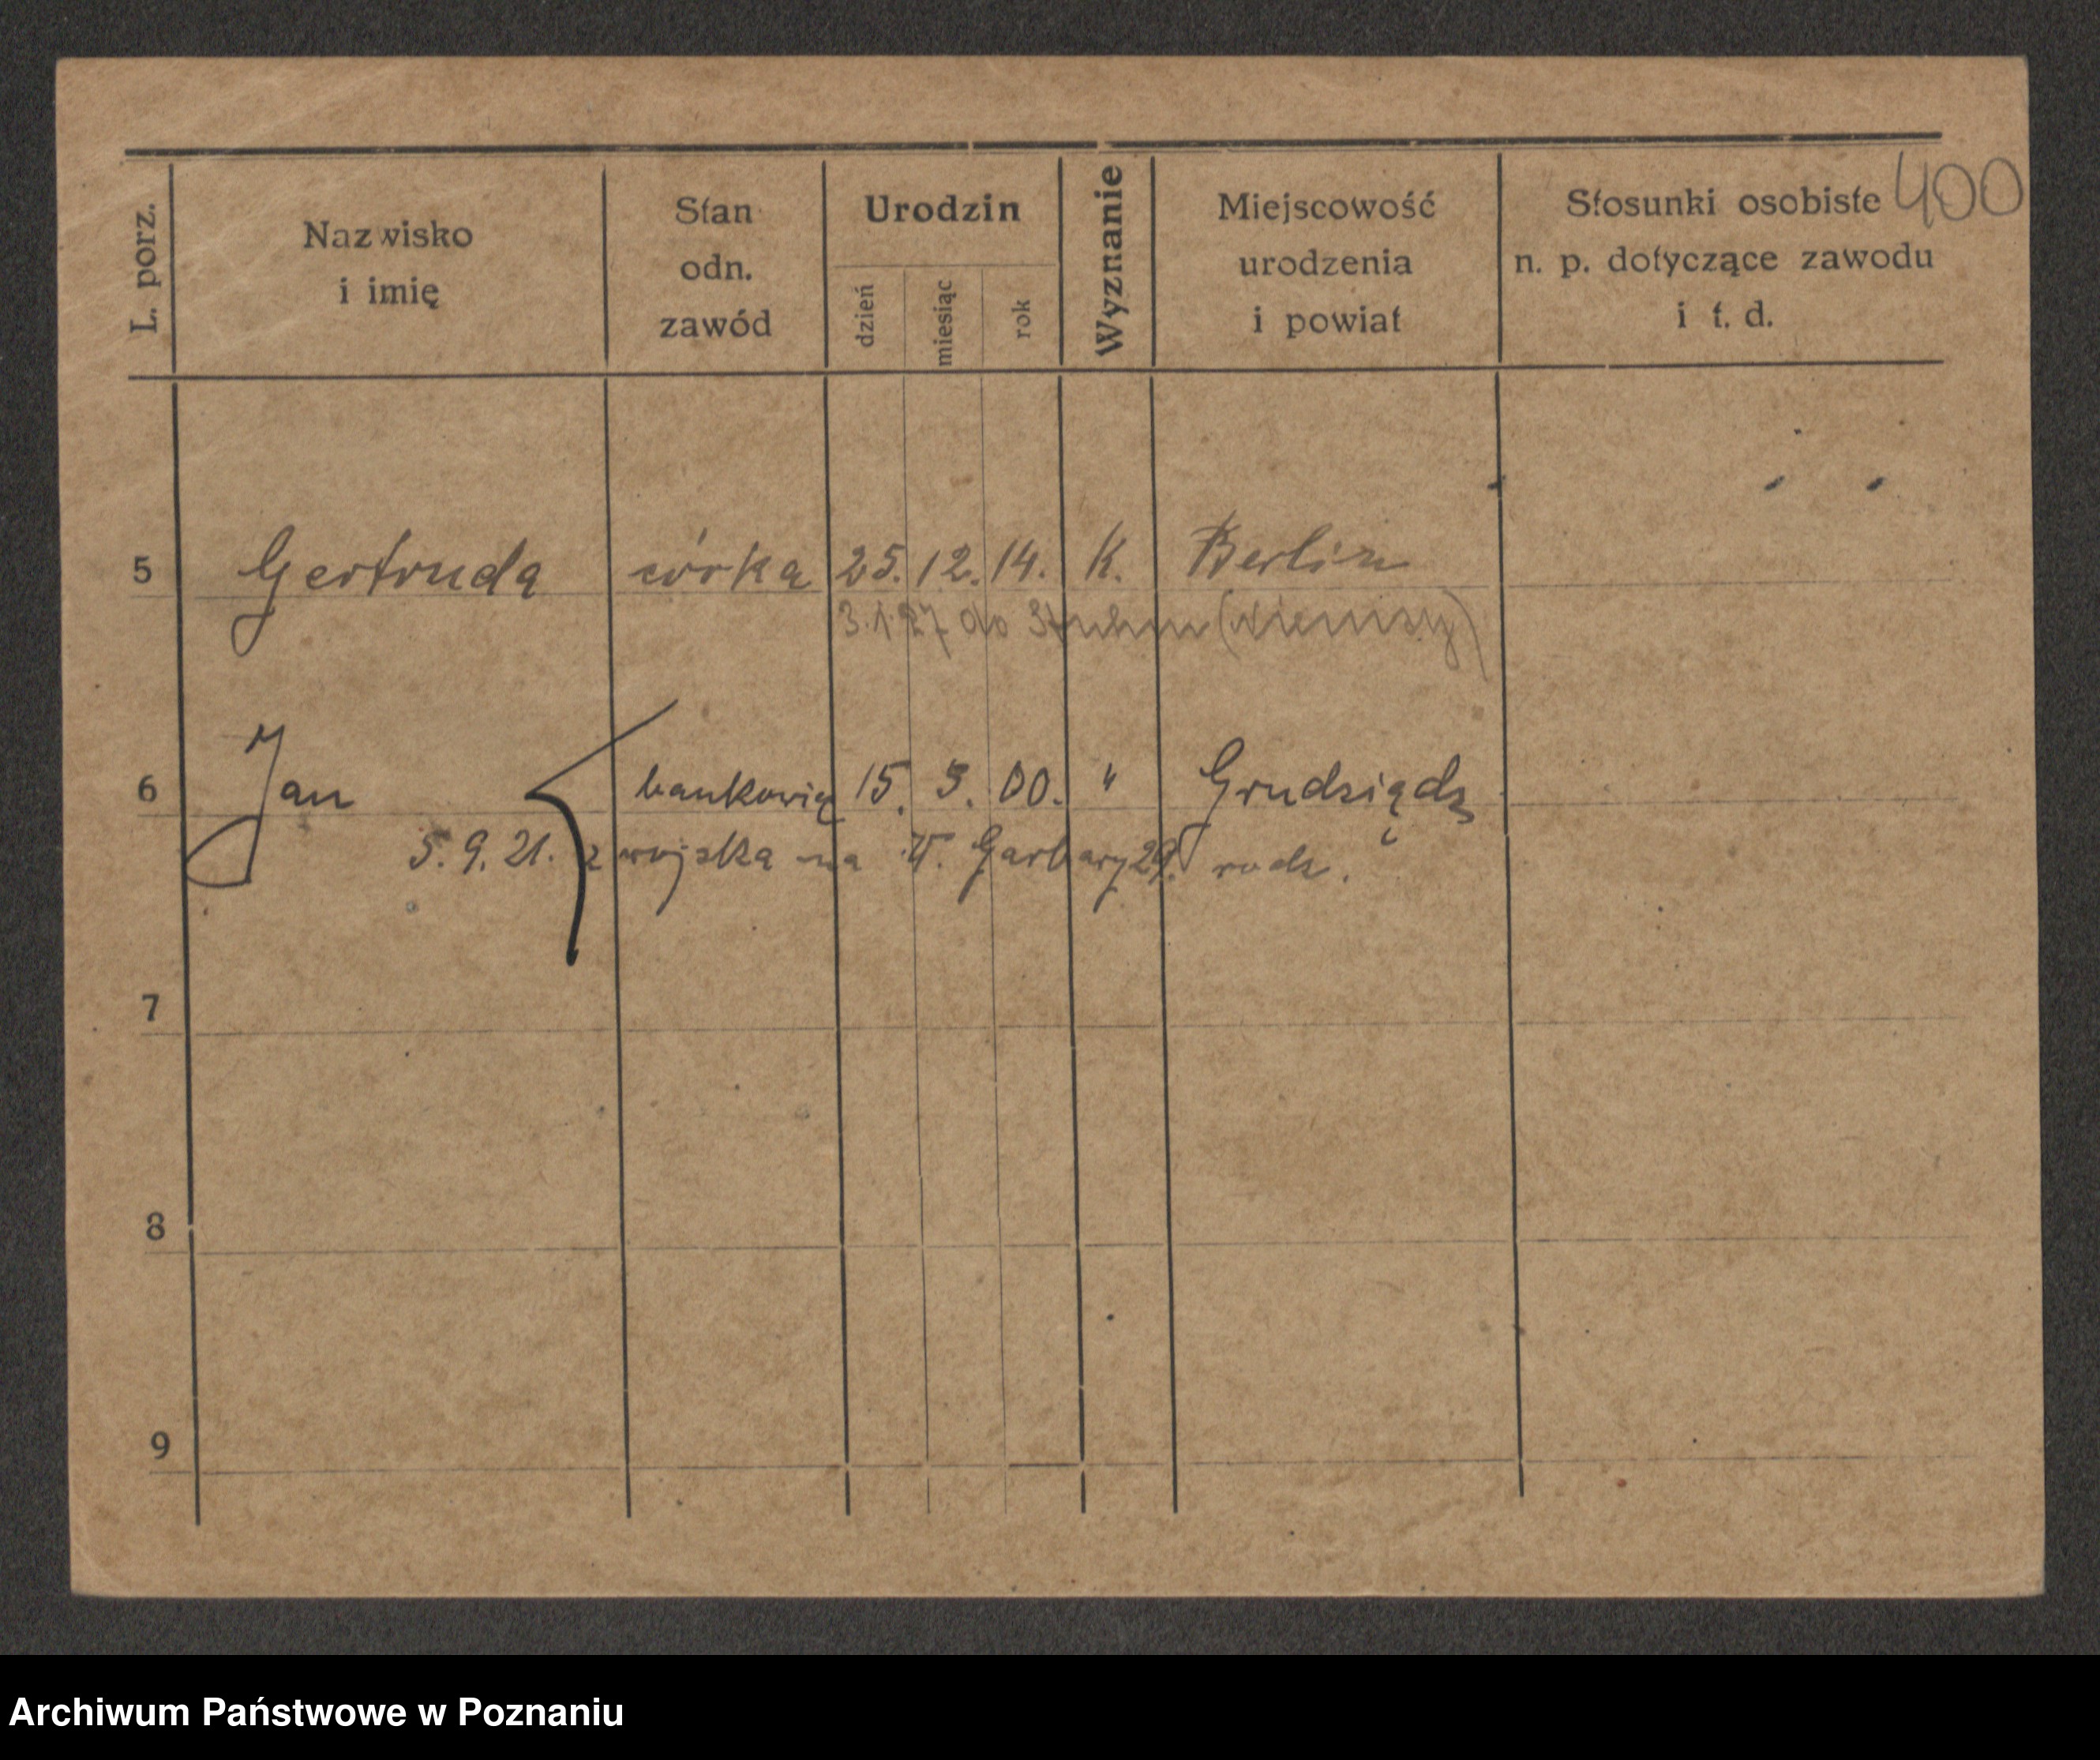 400
L. porz.
Nazwisko i imię
Stan odn. zawód
Urodzin
dzień miesiąc rok
Wyznanie
Miejscowość urodzenia i powiat
Stosunki osobiste n. p. dotyczące zawodu i t. d.
5 Gertruda córka 25. 12. 14. K. Berlin
3.1.27 do Stuhm (Niemcy)
6 Jan 15. 5. 00. " Grudziądz
5. 9. 21. z wojska na W. Garbary 29. rodz.
7
8
9
Archiwum Państwowe w Poznaniu